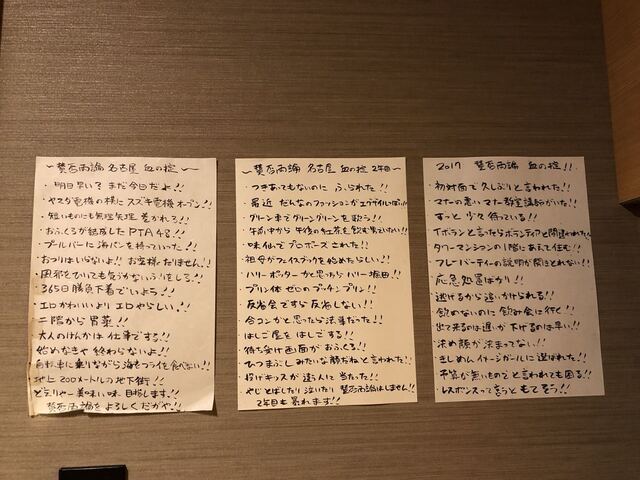 ～賛否両論 名古屋 血の掟～
・明日早い？まだ今日だよ!!
・ヤスダ電機の横に スズキ電機オープン!!
・短いものにも無理矢理 巻かれろ!!
・おふくろが結成した PTA48!!
・プールバーに海パンを持っていった!!
・おつりはいらないよ!! お客様だないません!!
・風邪をひいても気づかないふりをしろ!!
・365日勝負下着でいよう!!
・エロかわいいより エロやらしい!!
・二階から胃薬!!
・大人のけんかは 仕事でする!!
・始めなきゃ終わらないよ!!
・自転車に乗りながら海老フライを食べない!!
・地上200メートルの地下街!!
どえりゃー美味い味 目指します!!
賛否両論をよろしくだがや!!
～賛否両論 名古屋 血の掟 2年目～
・つきあってもないのに ふられた!!
・最近 だんなのファッションが
・グリーン車でグリーングリーンを歌う!!
・午前中から 午後の紅茶を飲む
・味仙で プロポーズされた!!
・祖母がフェイスブックを始めたらしい!!
・ハリーポッターかと思ったら ハリー掘田!!
・プリン体ゼロの プッチンプリン!!
・反省会ですら 反省しない!!
・合コンかと思ったら法事だった!!
・はしご屋を はしごする!!
・待ち受け画面が おふくろ!!
・ひつまぶしみたいな顔だねと言われた!!
・投げキッスが 違う人に 当たった!!
・やじとばしたり 泣いたり 賛否両論はしません!!
2年目も 暴れます!!
2017 賛否両論 血の掟!!
・初対面で 久しぶりと言われた!!
・マナーの悪い マナー教室講師がいた!!
・ずっと 少々 待っている!!
・Tボランと言ったら ボランティアと間違われた!!
・タワーマンションの1階にあえて住む!!
・フレーバーティーの説明が聞きとれない!!
・応急処置ばかり!!
・逃げるから追いかけられる!!
・飲めないのに 飲み会に行く!!
・出て来るのは遅いが 下げるのは早い!!
・決め顔が決まってない!!
・きしめん イメージガールに選ばれた!!
・予算が無いものでと言われても困る!!
・レスポンスって言うと もてそう!!